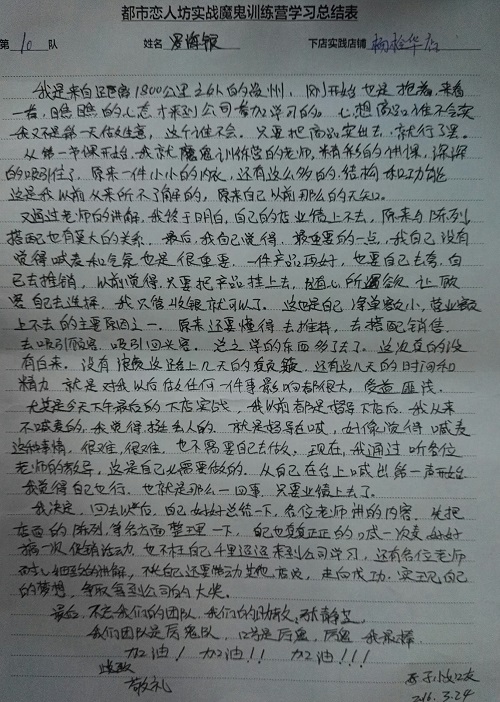 都市恋人坊实战魔鬼训练营学习总结表
第10队 姓名 下店实践店铺
我是来自 1800公里之外的 州, 刚开始也是抱着, 来看
看, 瞧瞧的心态才来到公司参加学习的。心想商品谁不会卖
我又不是第一天做生意, 这个谁不会。只要把商品卖出去, 就行了呗。
从第一节课开始, 我就 魔鬼训练营的老师, 精彩的讲课, 深深
的吸引住了, 原来一件小小的内衣, 还有这么多的结构和功能
这是我以前从来所不了解的, 原来自己以前那么的无知。
又通过老师的讲解, 我终于明白, 自己的店业绩上不去, 原来与陈列
搭配也有莫大的关系. 最后, 我自己觉得, 最重要的一点, 我自己没有
觉得喊麦和 也是很重要. 一件产品再好, 也要自己去夸. 自
己去推销, 以前觉得. 只要把产品挂上去, 随心所欲 让顾
客自己去选择. 我只管收银就可以了. 这也是自己 单额小, 营业额
上不去的主要原因之一. 原来还要懂得去推荐, 去搭配销售.
去吸引顾客. 吸引回头客. 总之学的东西多了去了. 这次真的没
有白来. 没有浪费这 上几天的 , 还有这几天的时间和
精力 就是对我以后做任何一件事影响都很大, 受益匪浅.
尤其是今天下午最后的下店实战, 我以前都是督导下店后. 我从来
不喊麦的. 我觉得 丢人的. 就是督导在喊, 好像觉得喊麦
这种事情. 很难, 很难. 也不需要自己去做. 现在, 我通过听各位
老师的教导, 这是自己必需要做的. 从自己在台上喊出第一声开始
我觉得自己也行. 也就是那么一回事. 只要业绩上去了.
我决定. 回去以后, 自己好好总结一下, 各位老师讲的内容. 先把
店面的陈列, 等各方面整理一下, 自己也真真正正的 一次麦好好
搞一次促销活动. 也不枉自己千里迢迢来到公司学习, 还有各位老师
的讲解, 不光自己还要带动其他店员, 走向成功. 实现自己
的梦想, 争取拿到公司的大奖。
最后, 不忘我们的团队. 我们的助教 静
我们团队是厉鬼队, 口号是厉鬼, 厉鬼 我最棒.
加油! 加油!! 加油!!!
此致
敬礼
2016.3.24